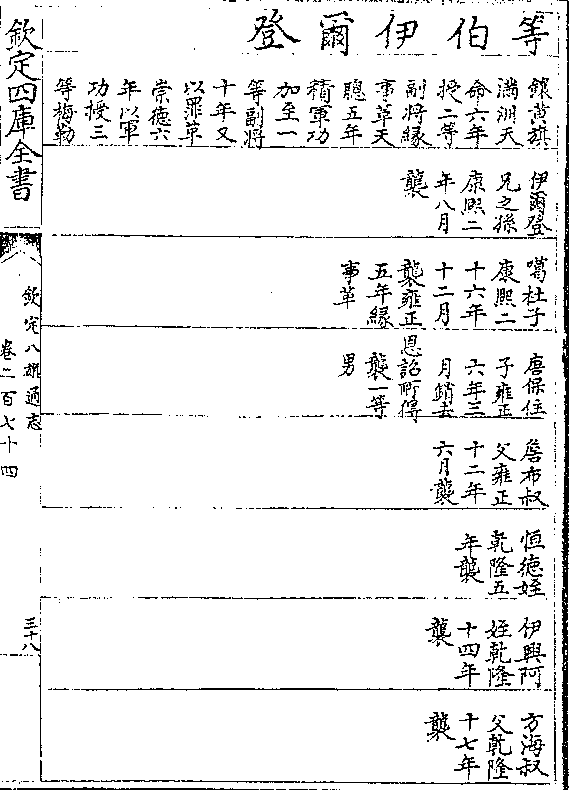 等伯伊爾登
鑲黃旗
滿洲天
命六年
授二等
副將緣
事革天
聰五年
積軍功
加至一
等副將
十年又
以罪革
崇德六
年以軍
功授三
等梅勒
伊爾登
兄之孫
康熙二
年八月
襲
噶杜子
康熙二
十六年
十二月
襲雍正
五年緣
事革
唐保住
子雍正
六年三
月銷去
恩詔所得
襲一等
男
詹布叔
父雍正
十二年
六月襲
恒德姪
乾隆五
年襲
伊興阿
姪乾隆
十四年
襲
方海叔
父乾隆
十七年
襲
欽定四庫全書
欽定八旗通志
卷二百七十四
三十八